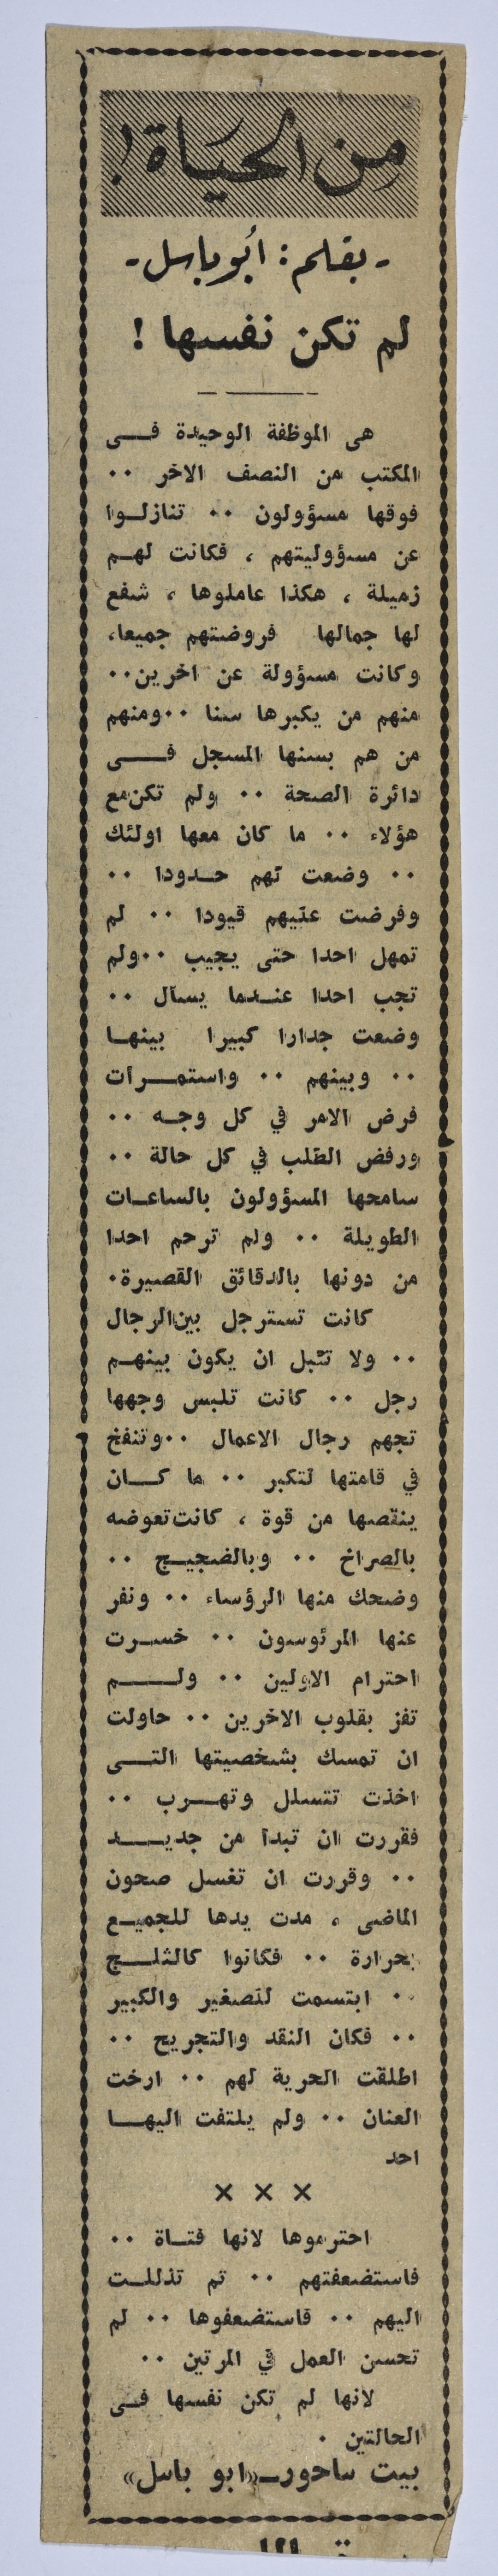 من الحياة !
- بقلم : أبو باسل -
لم تكن نفسها !
هى الموظفة الوحيدة فى
المكتب من النصف الاخر ٠٠
فوقها مسؤولون ٠٠ تنازلوا
عن مسؤوليتهم ، فكانت لهم
زميلة ، هكذا عاملوها ، شفع
لها جمالها فروضتهم جميعا،
وكانت مسؤولة عن اخرين٠٠
منهم من يكبرها سنا ٠٠ومنهم
من هم بسنها المسجل فى
دائرة الصحة ٠٠ ولم تكن مع
هؤلاء ٠٠ ما كان معها اولئك
٠٠ وضعت لهم حدودا ٠٠
وفرضت عليهم قيودا ٠٠ لم
تمهل احدا حتى يجيب ٠٠ولم
تجب احدا عندما يسأل ٠٠
وضعت جدارا كبيرا بينها
٠٠ وبينهم ٠٠ واستمرأت
فرض الامر في كل وجه ٠٠
ورفض الطلب في كل حالة ٠٠
سامحها المسؤولون بالساعات
الطويلة ٠٠ ولم ترحم احدا
من دونها بالدقائق القصيرة٠
كانت تسترجل بين الرجال
٠٠ ولا تقبل ان يكون بينهم
رجل ٠٠ كانت تلبس وجهها
تجهم رجال الاعمال ٠٠وتنفخ
في قامتها لتكبر ٠٠ ما كان
ينقصها من قوة ، كانت تعوضه
بالصراخ ٠٠ وبالضجيج ٠٠
وضحك منها الرؤساء ٠٠ ونفر
عنها المرئوسون ٠٠ خسرت
احترام الاولين ٠٠ ولم
تفز بقلوب الاخرين ٠٠ حاولت
ان تمسك بشخصيتها التى
اخذت تتسلل وتهرب ٠٠
فقررت ان تبدأ من جديد
٠٠ وقررت ان تغسل صحون
الماضى ، مدت يدها للجميع
بحرارة ٠٠ فكانوا كالثلج
٠٠ ابتسمت للصغير والكبير
٠٠ فكان النقد والتجريح ٠٠
اطلقت الحرية لهم ٠٠ ارخت
العنان ٠٠ ولم يلتفت اليها
احد
× × ×
احترموها لانها فتاة ٠٠
فاستضعفتهم ٠٠ ثم تذللت
اليهم ٠٠ فاستضعفوها ٠٠ لم
تحسن العمل في المرتين ٠٠
لانها لم تكن نفسها فى
الحالتين ٠
بيت ساحور_«ابو باسل»